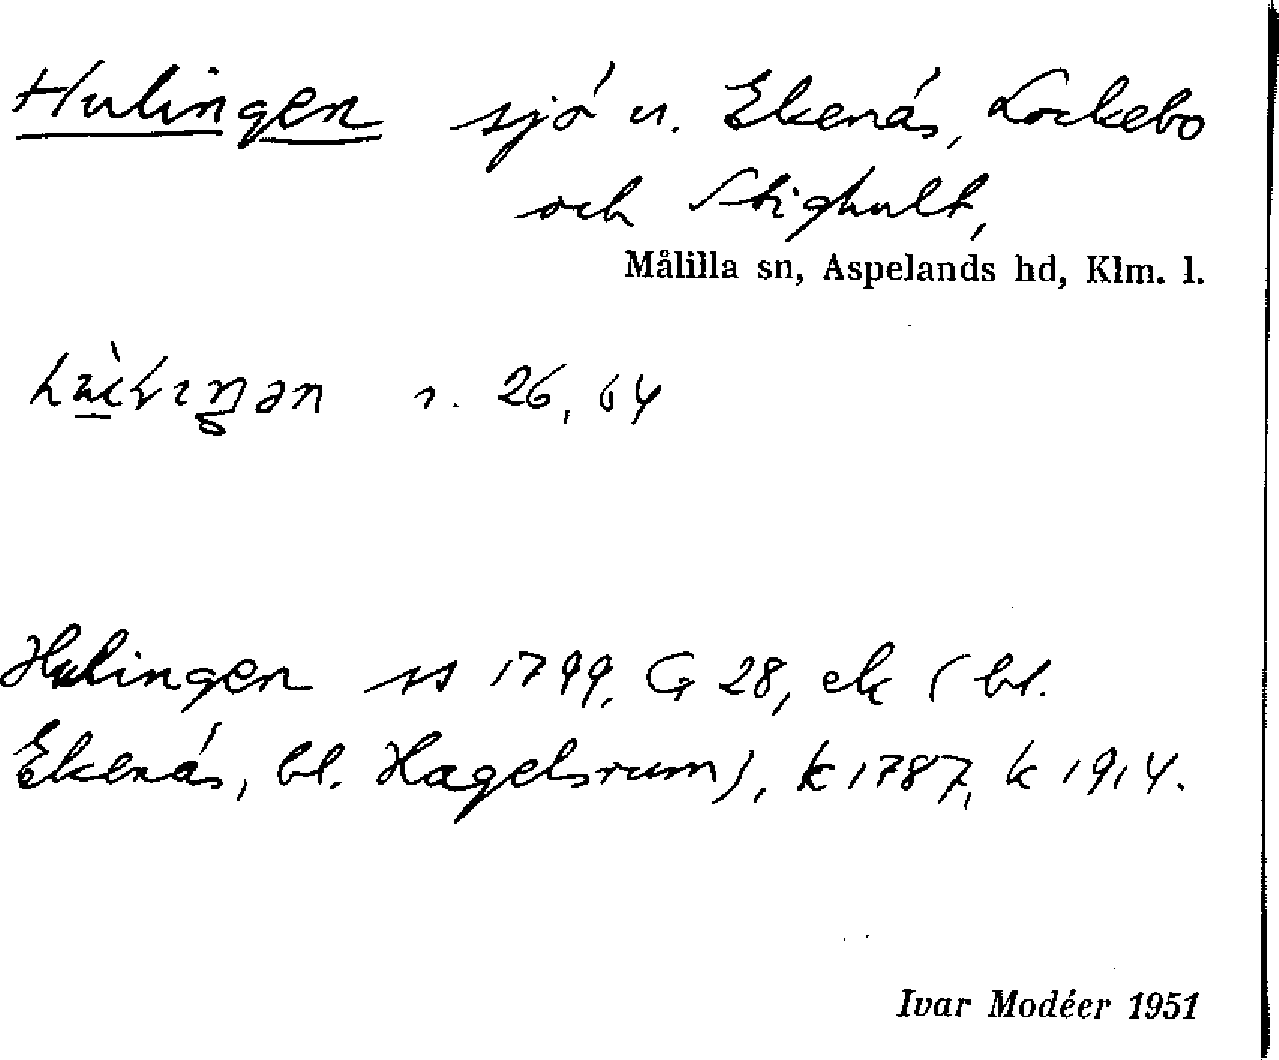 Hulingen sjö u. Ekenäs, Lockebo
och Stighult,
Målilla sn, Aspelands hd, Klm. l.
s. 26, 64
Hulingen ss 1799, G 28, ek (bl.
Ekenäs, bl. Hagelsrum), k 1787, k 1914.
Ivar Modéer 1951